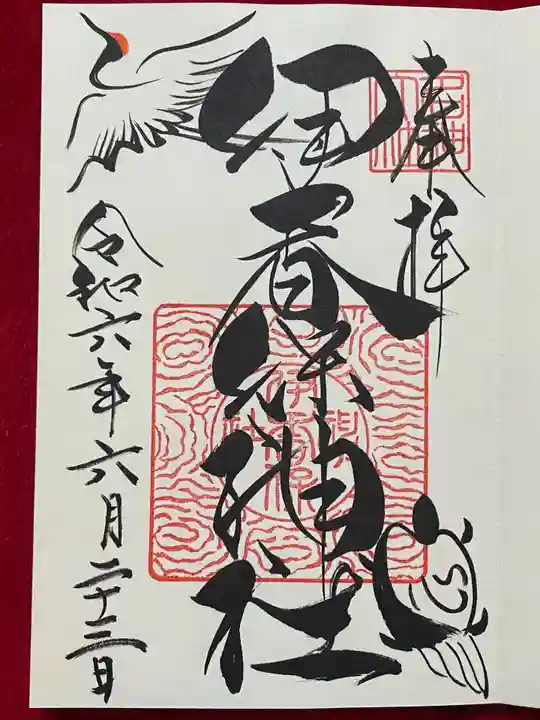 奉拝
伊香保神社
令和六年六月二十三日